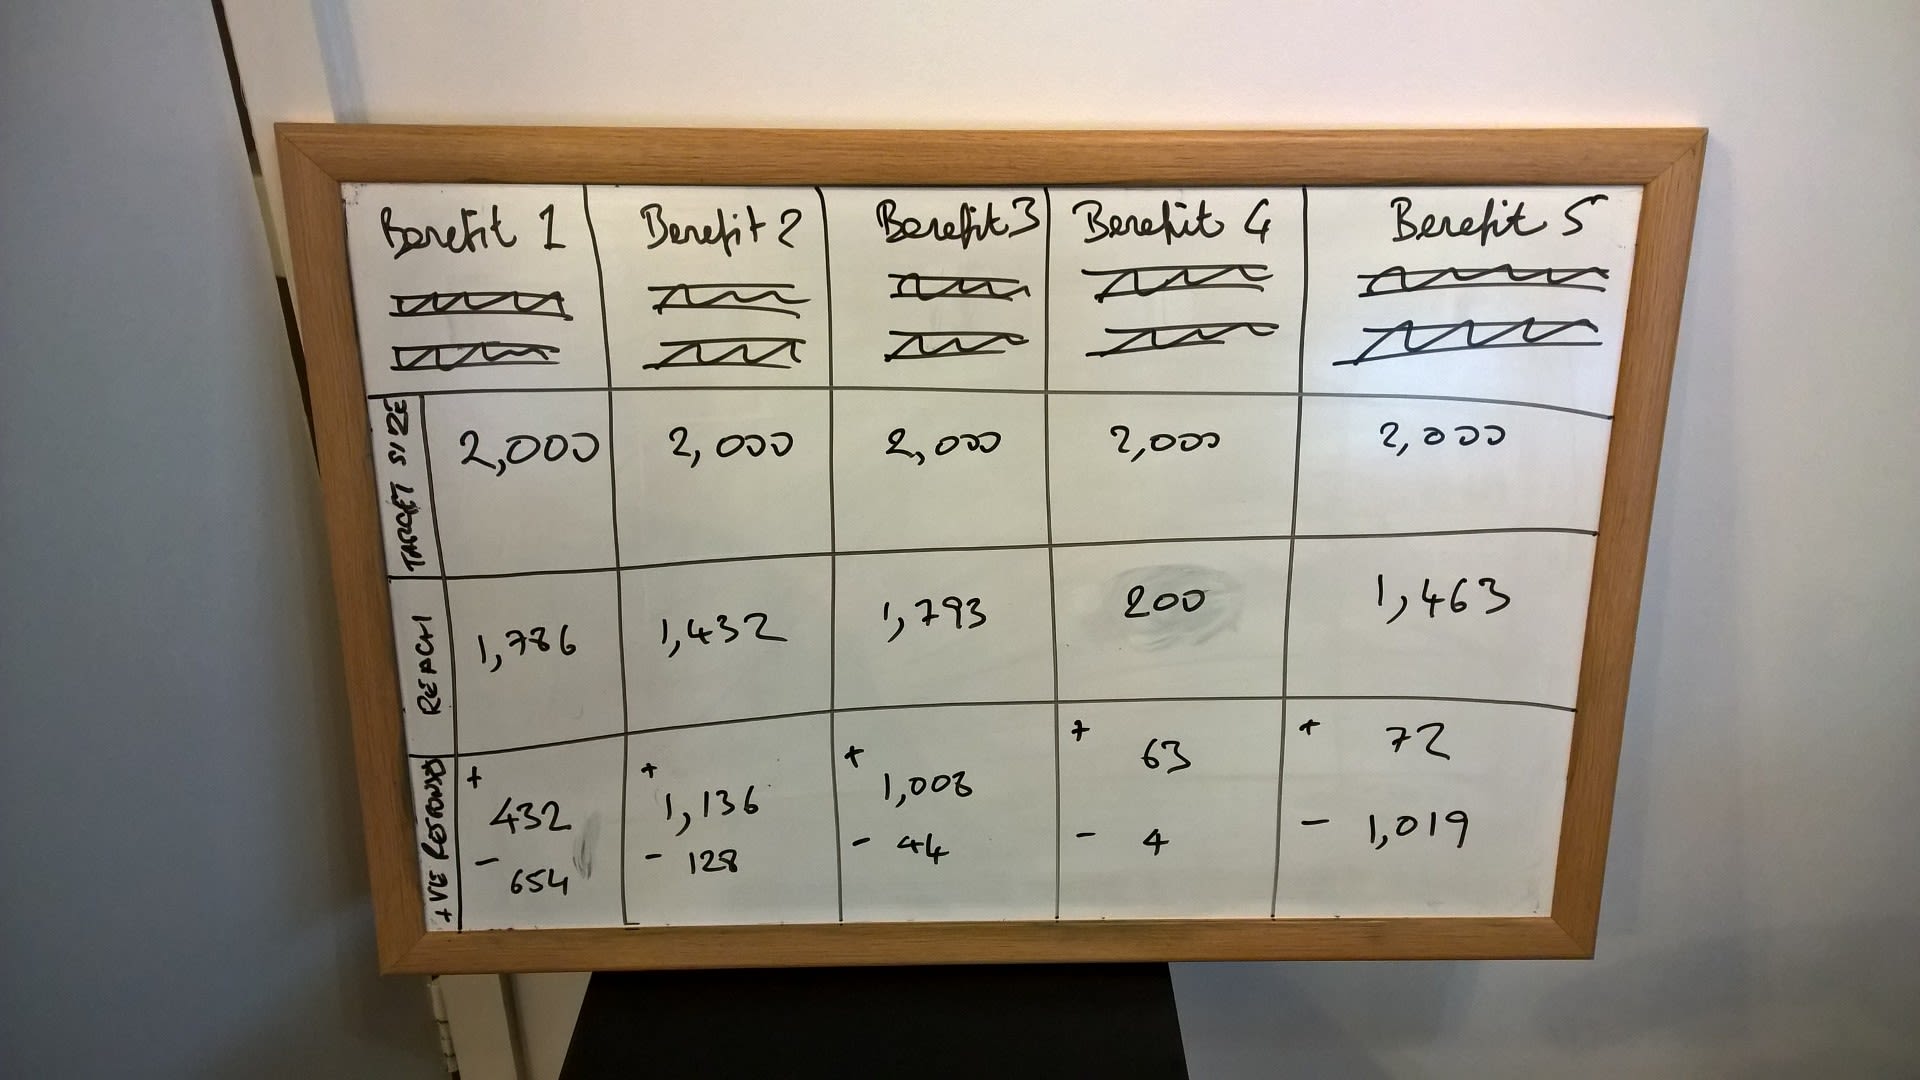 Benefit 1 Benefit 2 Benefit 3 Benefit 4 Benefit 5
TARGET SIZE 2,000 2,000 2,000 2,000 2,000
REACH 1,786 1,432 1,793 200 1,463
+VE RESPONSES
+ 432 + 1,136 + 1,008 + 63 + 72
- 654 - 128 - 44 - 4 - 1,019